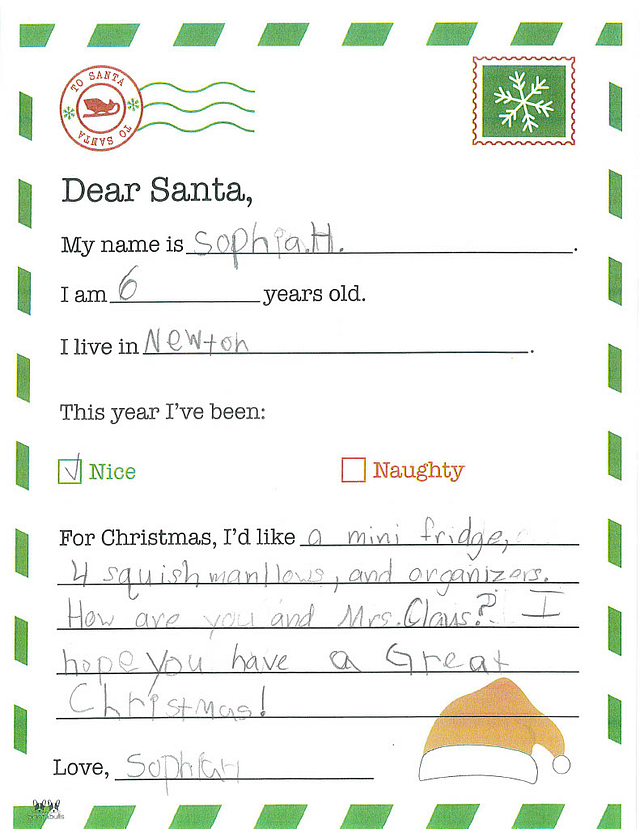 TO SANTA
TO SANTA
Dear Santa,
My name is Sophia.H.
I am 6 years old.
I live in Newton.
This year I've been:
Nice Naughty
For Christmas, I'd like a mini fridge,
4 squishmanllows, and organizers.
How are you and Mrs. Claus? I
hope you have a Great
Christmas!
Love, SophiaH